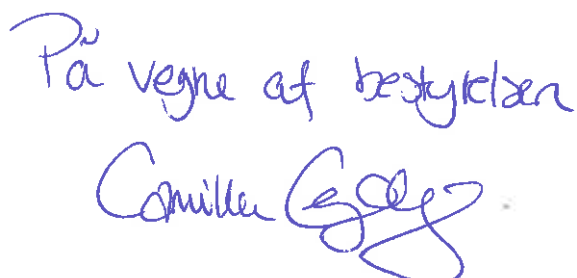 På vegne af bestyrelsen
Camilla